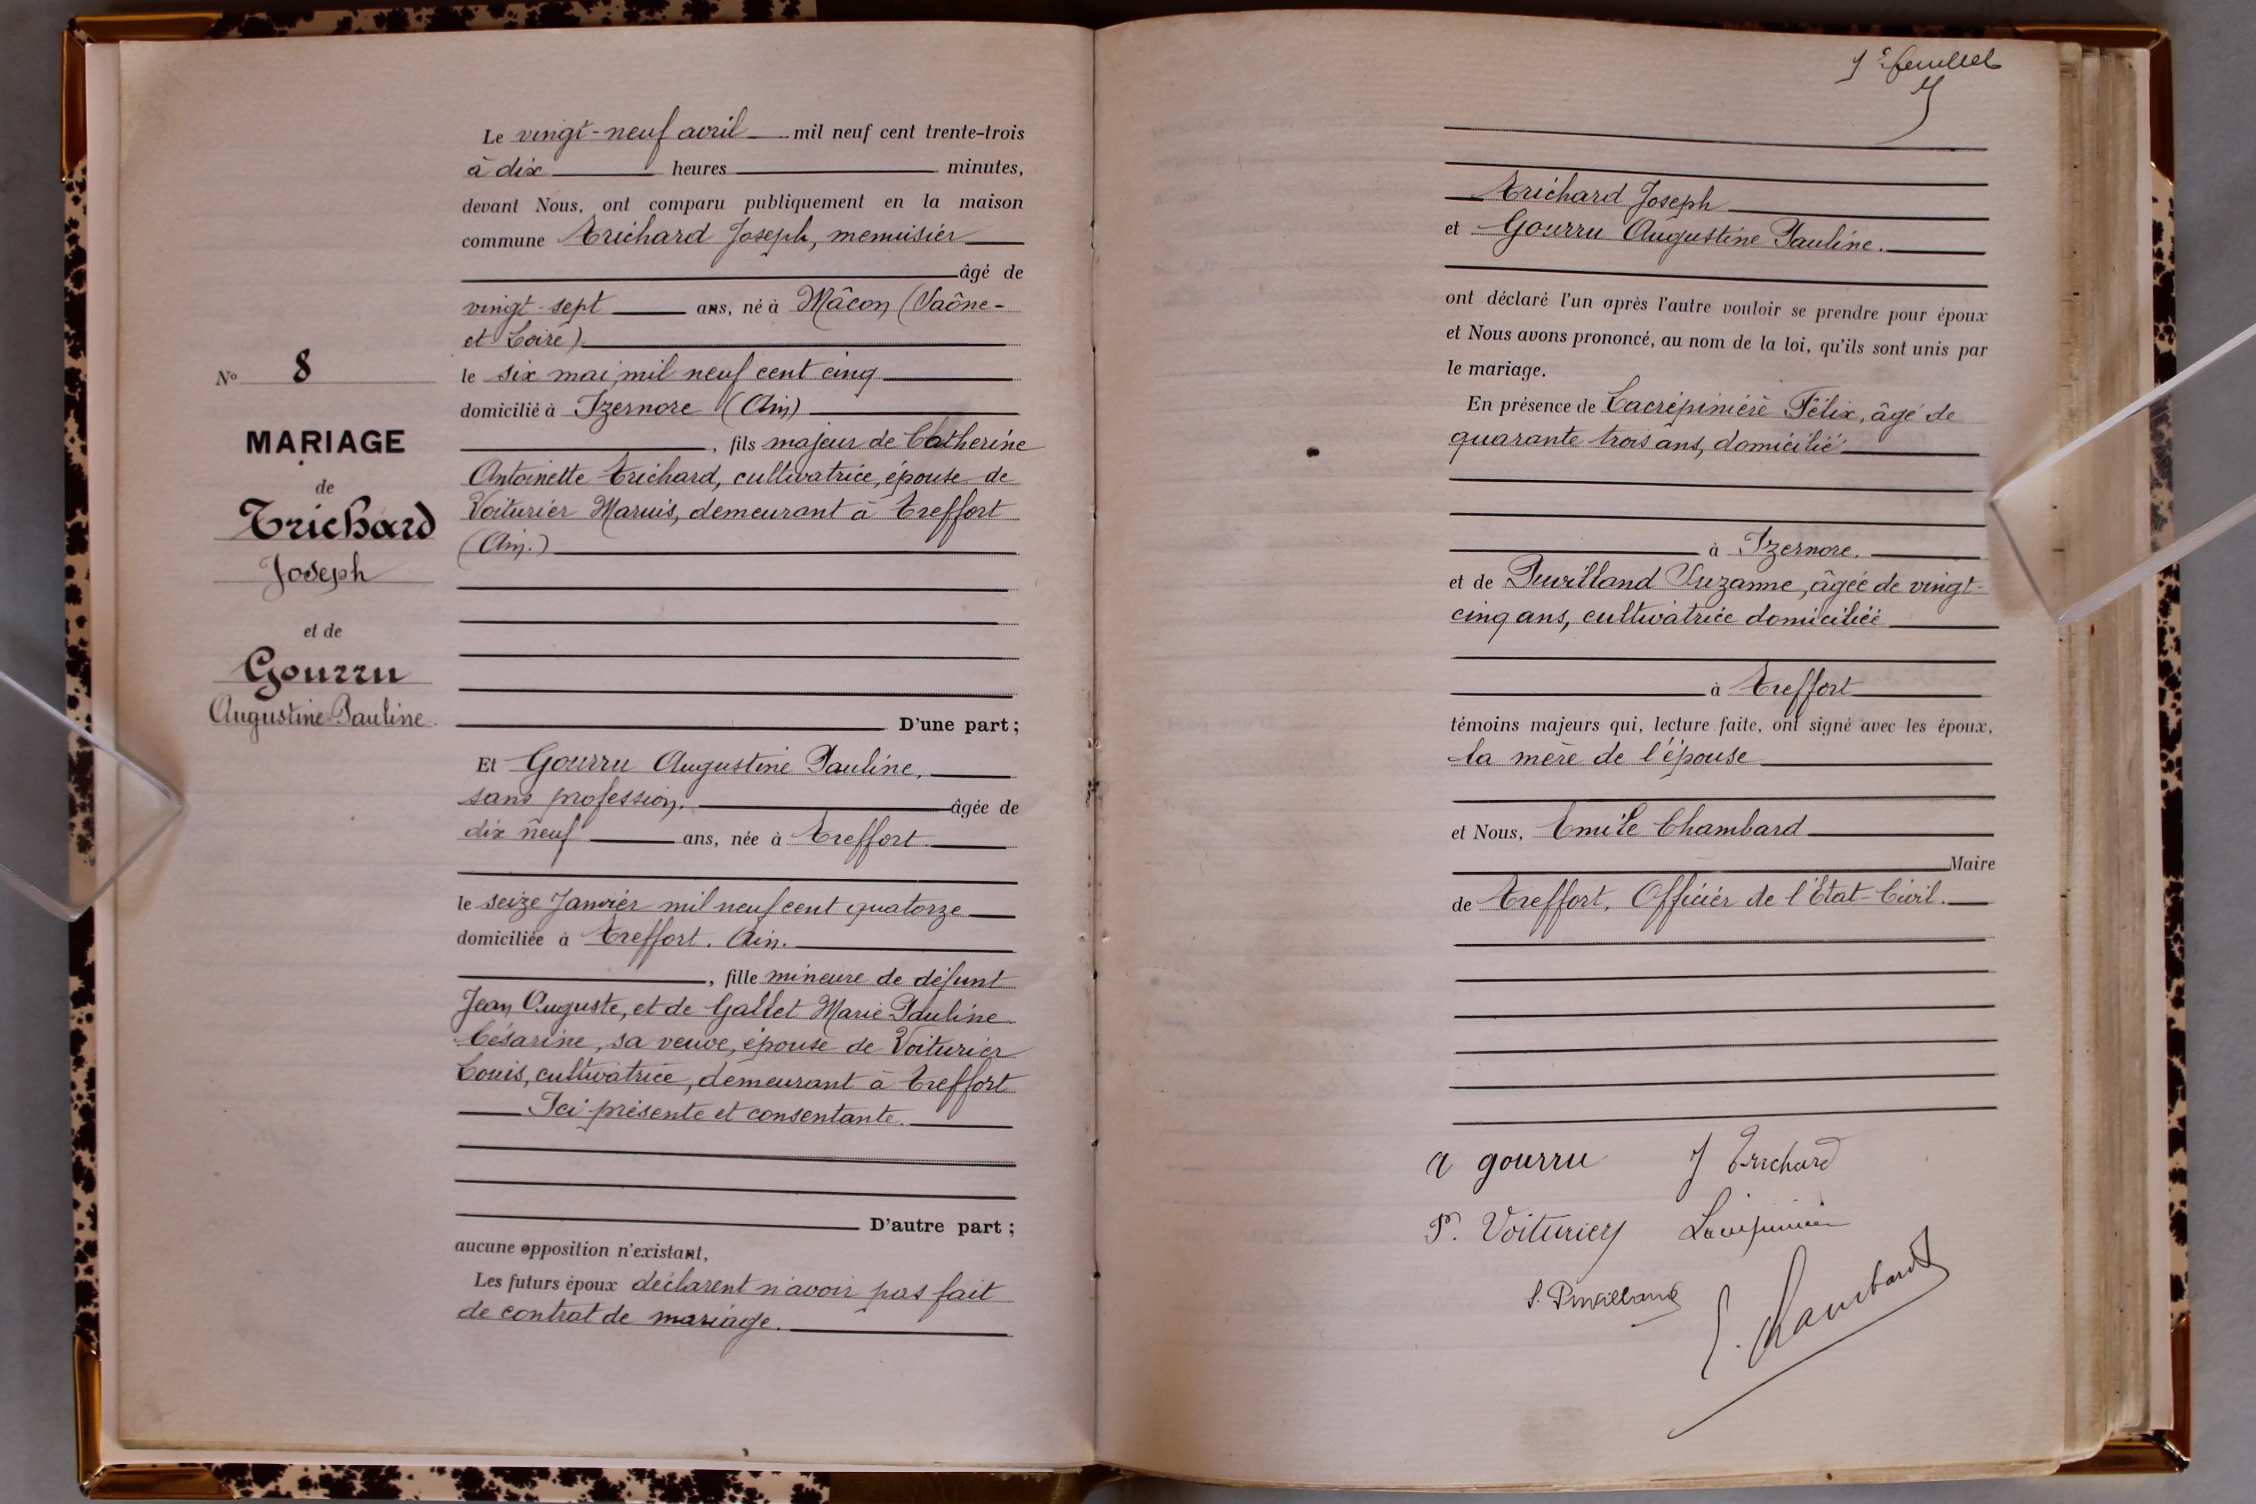 Le vingt-neuf avril mil neuf cent trente-trois
à dix heures minutes,
devant Nous, ont comparu publiquement en la maison
commune Trichard Joseph, menuisier
âgé de
vingt-sept ans, né à Mâcon (Saône-
et Loire)
le six mai mil neuf cent cinq
domicilié à Izernore (Ain)
, fils majeur de Catherine
Antoinette Trichard, cultivatrice, épouse de
Voiturier Marius, demeurant à Treffort
(Ain.)
D'une part ;
Et Gourru Augustine Pauline,
sans profession. âgée de
dix neuf ans, née à Treffort
le seize Janvier mil neuf cent quatorze
domiciliée à Treffort. Ain.
, fille mineure de défunt
Jean Auguste, et de Gallet Marie Pauline
Césarine, sa veuve, épouse de Voiturier
Louis, cultivatrice, demeurant à Treffort
Ici présente et consentante.
D'autre part ;
aucune opposition n'existant,
Les futurs époux déclarent n'avoir pas fait
de contrat de mariage.
No 8
MARIAGE
de
Trichard
Joseph
et de
Gourru
Augustine Pauline.
feuillet
Trichard Joseph
et Gourru Augustine Pauline.
ont déclaré l'un après l'autre vouloir se prendre pour époux
et Nous avons prononcé, au nom de la loi, qu'ils sont unis par
le mariage.
En présence de Lacrépinière Félix, âgé de
quarante trois ans, domicilié
à Izernore.
et de Puvilland Suzanne, âgée de vingt-
cinq ans, cultivatrice domiciliée
à Treffort
témoins majeurs qui, lecture faite, ont signé avec les époux,
la mère de l'épouse
et Nous, Emile Chambard
Maire
de Treffort, Officier de l'Etat-Civil.
a gourru J Trichard
P. Voiturier Lacrépinière
S. Puvilland
E. Chambard